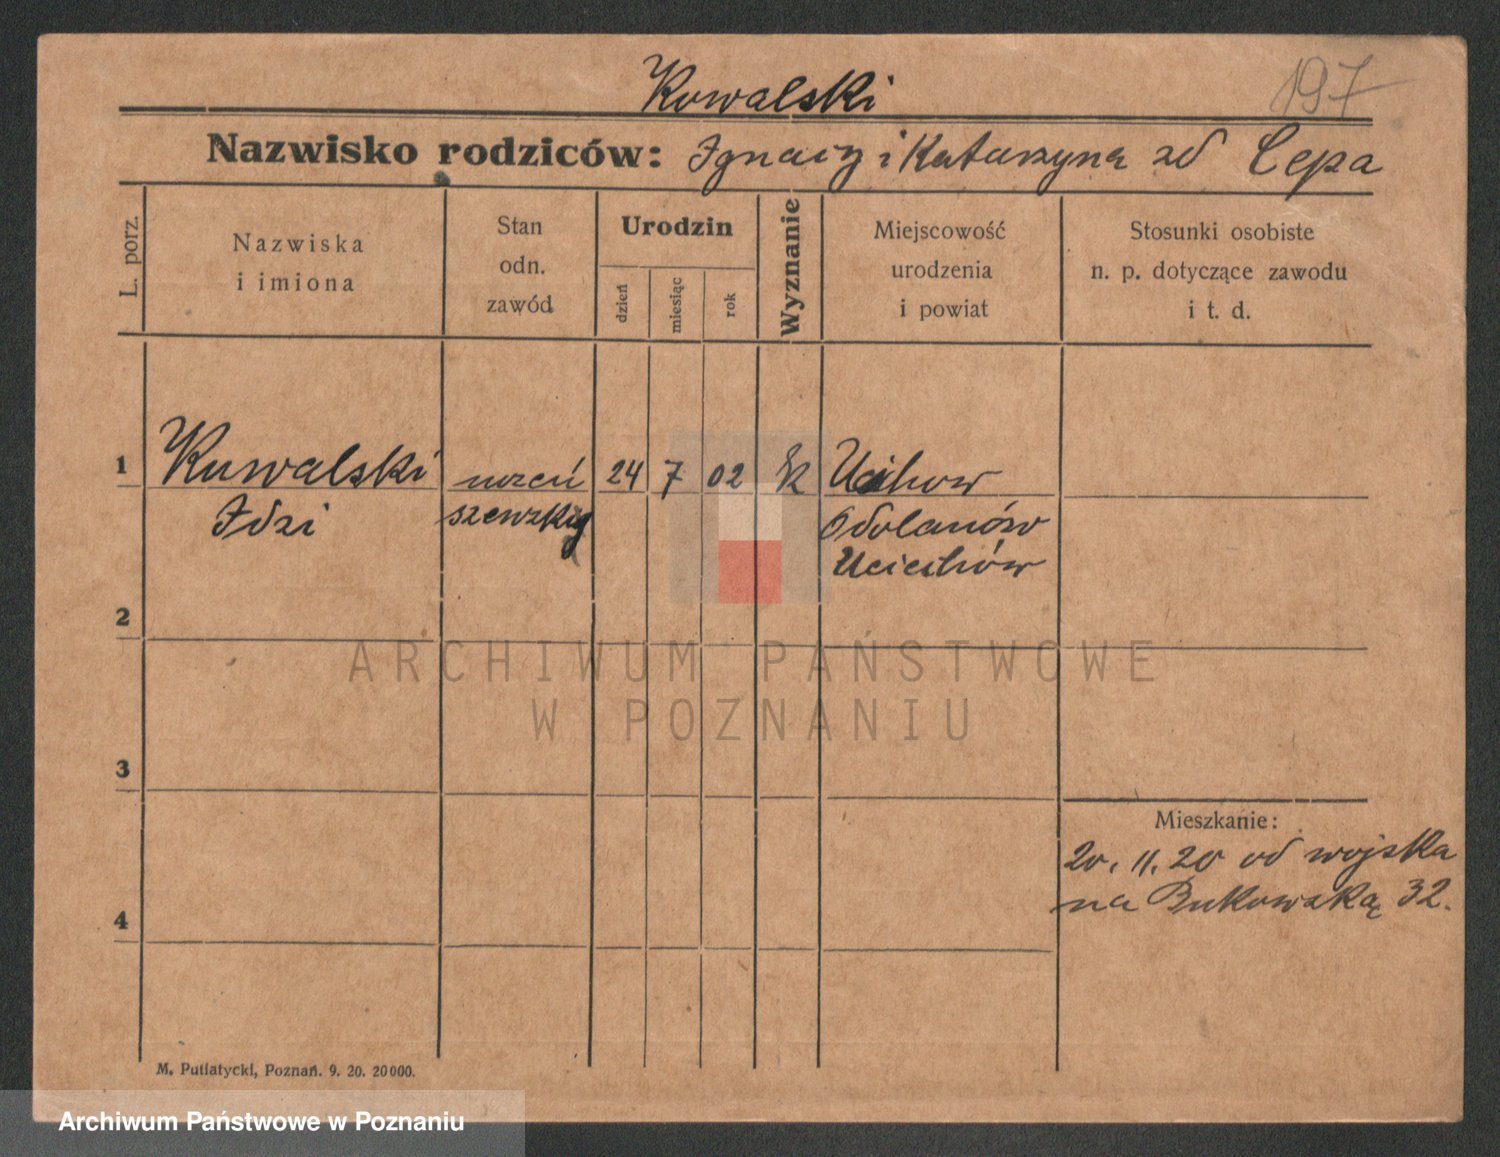 Kowalski
197
Nazwisko rodziców: Ignacy i Katarzyna zd Cepa
L. porz.
Nazwiska
i imiona
Stan
odn.
zawód
Urodzin
dzień
miesiąc
rok
Wyznanie
Miejscowość
urodzenia
i powiat
Stosunki osobiste
n. p. dotyczące zawodu
i t. d.
1 Kowalski uczeń 24 7 02 k
Idzi szewzki Odolanów
Uciechów
2
ARCHIWUM PAŃSTWOWE
W POZNANIU
3
Mieszkanie:
20. 11. 20 od wojska
na Bukowską 32.
4
M. Putiatycki, Poznań. 9. 20. 20000.
Archiwum Państwowe w Poznaniu